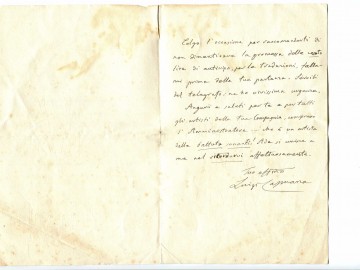 Colgo l'occasione per raccomandarti di
non dimenticare la promessa delle cento
lire di anticipo, per la traduzione, fatta-
mi prima della tua partenza. Serviti
del telegrafo; ne ho vivissima urgenza.
Auguri e saluti per te e per tutti
gli artisti della tua Compagnia, compreso
l'Amministratore che è un artista
della! Ada si unisce a
me nel affettuosamente.
Tuo affmo
Luigi Capuana